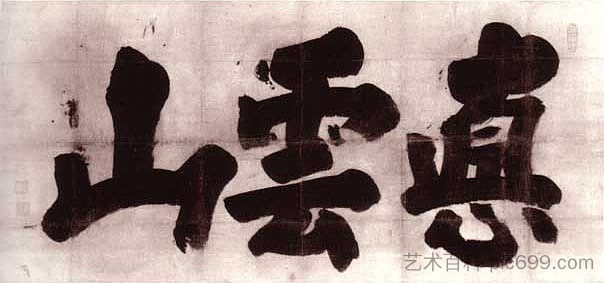 悳雲山
艺术百科 pic699.com